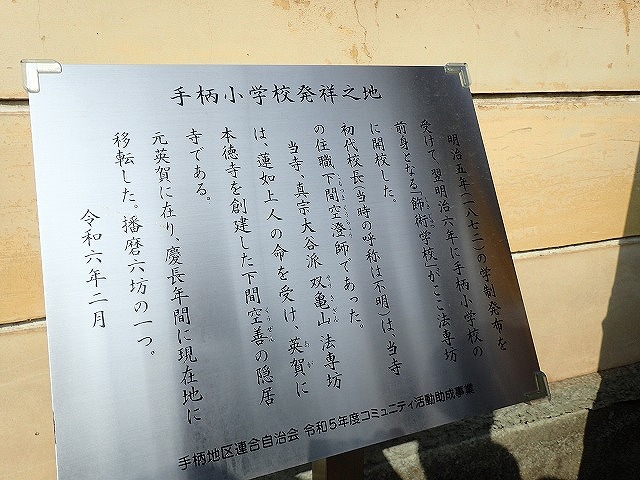 手柄小学校発祥之地
明治五年(一八七二)の学制発布を
受けて、翌明治六年に手柄小学校の
前身となる「飾術学校」がここ法専坊
に開校した。
初代校長(当時の呼称は不明)は、当寺
の住職下間空澄師であった。
当寺、真宗大谷派 双亀山 法専坊
は、蓮如上人の命を受け、英賀に
本徳寺を創建した下間空善の隠居
寺である。
元英賀に在り、慶長年間に現在地に
移転した。播磨六坊の一つ。
令和六年二月
手柄地区連合自治会 令和5年度コミュニティ活動助成事業